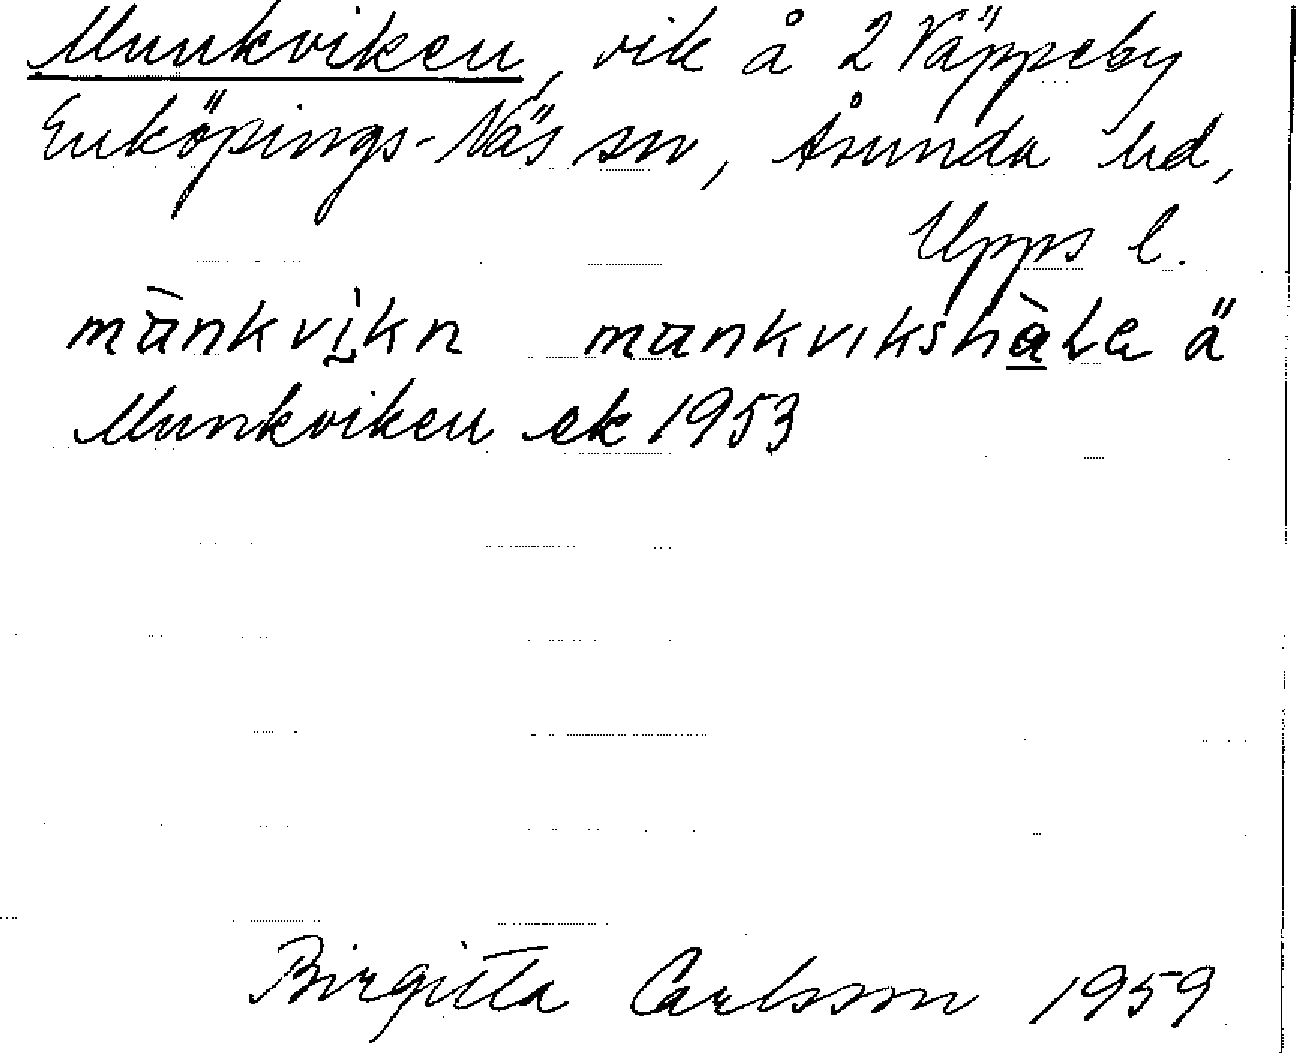 Munkviken, vik å 2 Väppeby
Enköpings-Näs sn, Åsunda hd,
Upps l.
Munkviken ek 1953
Birgitta Carlsson 1959